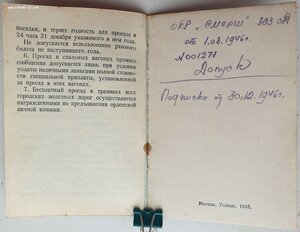 поездки, и теряет годность для проезда в
24 часа 31 декабря указанного в нем года.
Не допускается использование разового
(листа) не наступившего года.
6. Проезд в спальных вагонах мягкого
сообщения допускается лишь при условии
уплаты наличными деньгами полной стоимости
специальной приплаты, установленной
за проезд в этих вагонах.
7. Бесплатный проезд в трамваях всех
городских железных дорог осуществляется
награжденными по предъявлении орденской
книжки.
ОКР „Смерш" 383 сд
от 1.03.1946г.
№001271
Допуск
Подписка от 30.12.1946г.
Москва. Гознак. 1945.